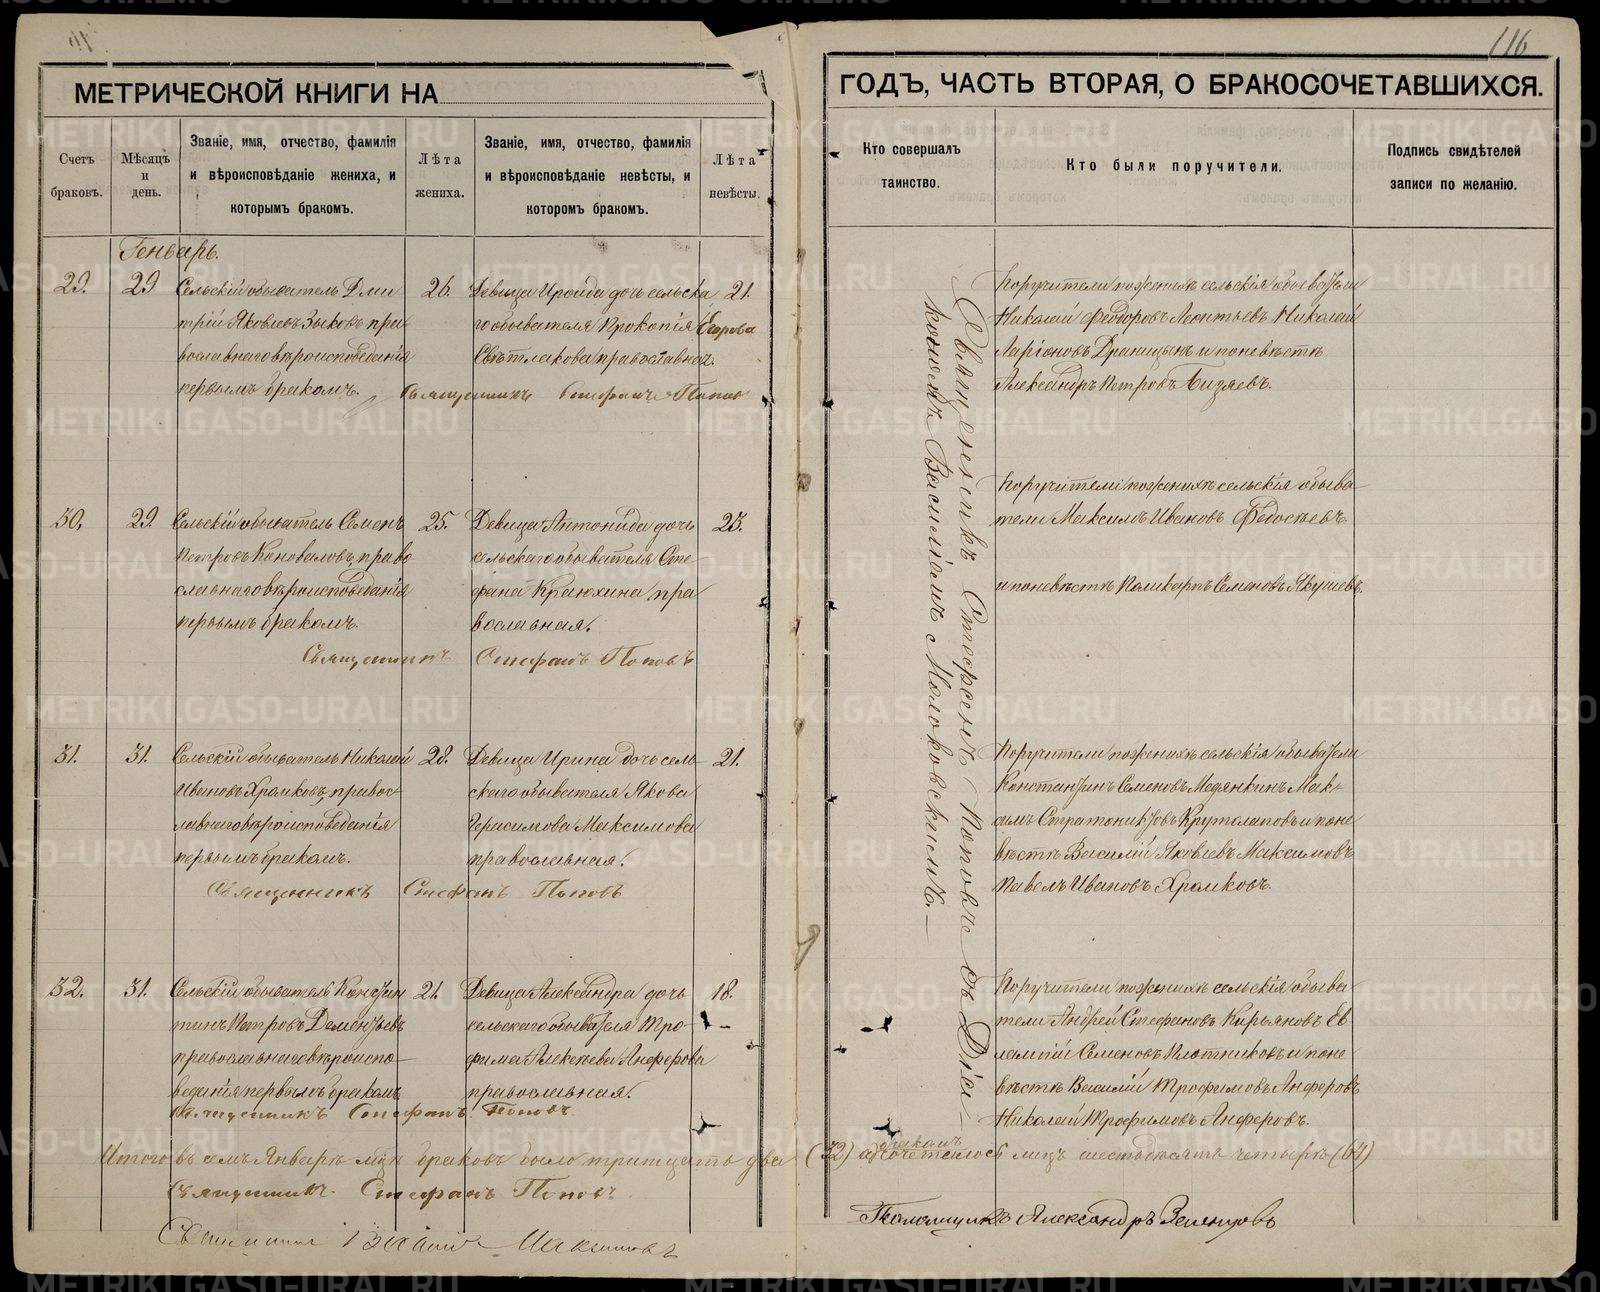 116
МЕТРИЧЕСКОЙ КНИГИ НА
ГОДЪ, ЧАСТЬ ВТОРАЯ, О БРАКОСОЧЕТАВШИХСЯ.
Счетъ браковъ.
Мѣсяцъ и день.
Званіе, имя, отчество, фамилія
и вѣроисповѣданіе жениха, и
которымъ бракомъ.
Лѣта жениха.
Званіе, имя, отчество, фамилія
и вѣроисповѣданіе невѣсты, и
которомъ бракомъ.
Лѣта невѣсты.
Кто совершалъ
таинство.
Кто были поручители.
Подпись свидѣтелей
записи по желанію.
Генварь.
29.
29
Сельскій обыватель Дми
трій Яковлевъ Зыковъ пра
вославнаго вѣроисповѣданія
первымъ бракомъ.
26.
Девица Ираида дочь сельска
го обывателя Прокопія Егорова
Свѣтлакова православная.
21.
Священникъ Стефанъ Попов
Поручители по женихѣ сельскія обыватели
Николай Феодоровъ Леонтьевъ Николай
Ларіоновъ Драницынъ и по невѣстѣ
Александръ Петровъ Бизяевъ.
30.
29.
Сельскій обыватель Семенъ
Петровъ Коноваловъ, право
славнаго вѣроисповѣданія
первымъ бракомъ.
25.
Девица Антонида дочь
сельскаго обывателя Сте
фана Краюхина пра
вославная.
23.
Священникъ Стефанъ Поповъ
Поручители по женихѣ сельскія обыва
тели Максимъ Ивановъ Федосѣевъ
и по невѣстѣ Поликарпъ Семеновъ Якушевъ.
31.
31.
Сельскій обыватель Николай
Ивановъ Храмковъ, правос
лавнаго вѣроисповѣданія
первымъ бракомъ.
28.
Девица Ирина дочь сель
скаго обывателя Якова
Герасимова Максимова
православная.
21.
Священникъ Стефанъ Поповъ
Поручители по женихѣ сельскія обыватели
Константинъ Семеновъ Медянкинъ Мак
симъ Стратониковъ Круталаповъ и по не
вѣстѣ Василій Яковлевъ Максимовъ
Павелъ Ивановъ Храмковъ.
32.
31.
Сельскій обыватель Констан
тинъ Петровъ Дементьевъ
православнаго вѣроиспо
веданія первымъ бракомъ
21.
Девица Александра дочь
сельскаго обывателя Тро
фима Алексѣева Анферова
православная.
18.
Священникъ Стефанъ Поповъ
Поручители по женихѣ сельскія обыва
тели Андрей Стефановъ Кирьяновъ Ев
лампій Семеновъ Плотниковъ и по не
вѣстѣ Василій Трофимовъ Анферовъ
Николай Трофимовъ Анферовъ.
Священникъ Стефанъ Поповъ съ Діа
кономъ Василіемъ Молоковскимъ.
Итого въ семъ Январѣ м-цѣ браковъ было тритцать два (32) бракомъ сочеталось лицъ шестьдесятъ четыре (64)
Священникъ Стефанъ Поповъ.
Максимовъ
Псаломщикъ Александръ Зеленцовъ
METRIKI.GASO-URAL.RU